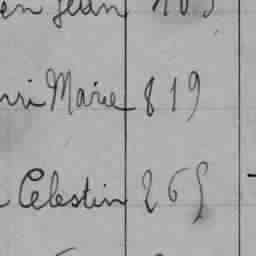 en Jean
nri Marie 819
Celestin 265